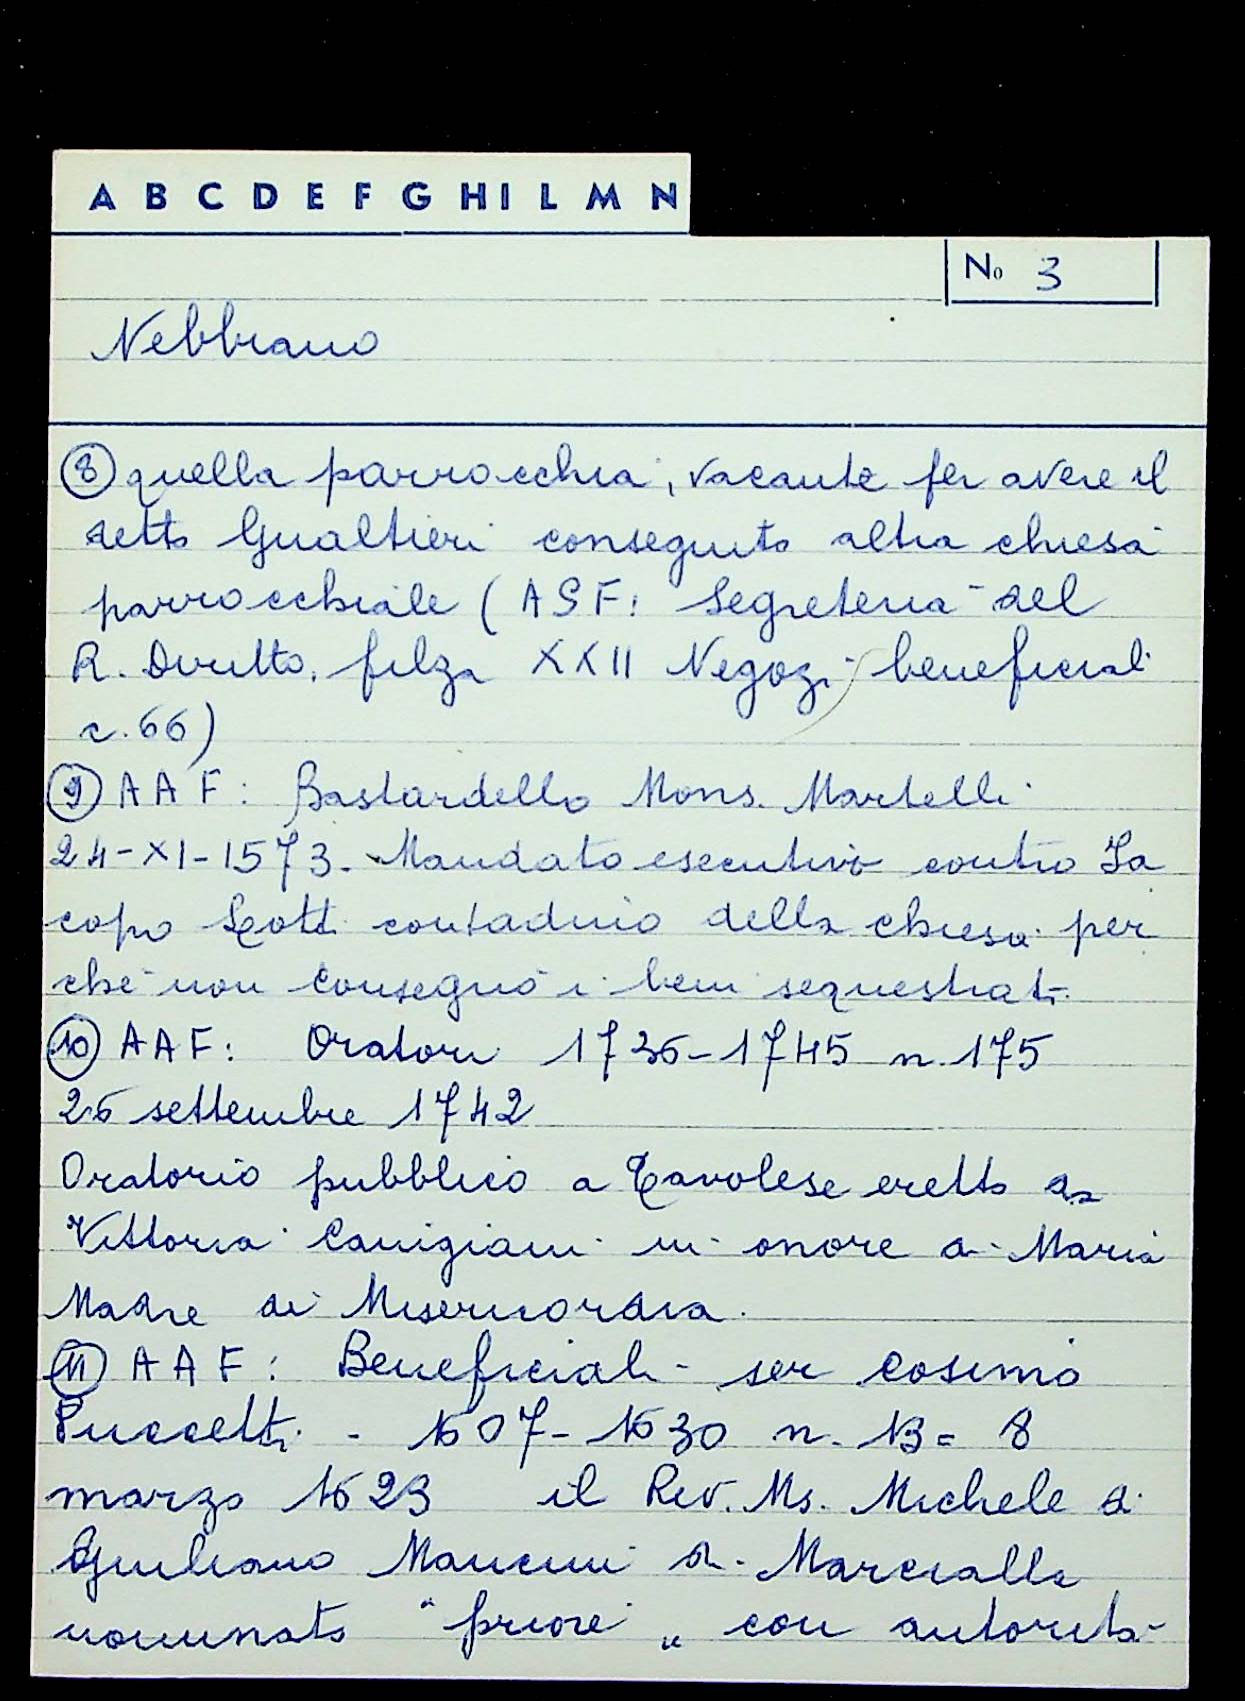 A B C D E F G H I L M N
No 3
Nebbiano
⑧ quella parrocchia, vacante per avere il
detto Gualtieri conseguito altra chiesa
parrocchiale (ASF: Segreteria del
R. Diritto, filza XXII Negozi beneficiali
c. 66)
⑨ AAF: Bastardello Mons. Martelli
24-XI-1573. Mandato esecutivo contro Ja
copo Lotti contadino della chiesa per
ché non consegnò i beni sequestrati.
⑩ AAF: Oratori 1736-1745 n. 175
26 settembre 1742
Oratorio pubblico a Tavolese eretto da
Vittoria Canigiani in onore di Maria
Madre di Misericordia.
⑪ AAF: Beneficiali - ser Cosimo
Puccetti - 1607-1630 n. 13 = 8
marzo 1623 il Rev. Ms. Michele di
Giuliano Mancini di Marcialla
nominato "priore" con autorità